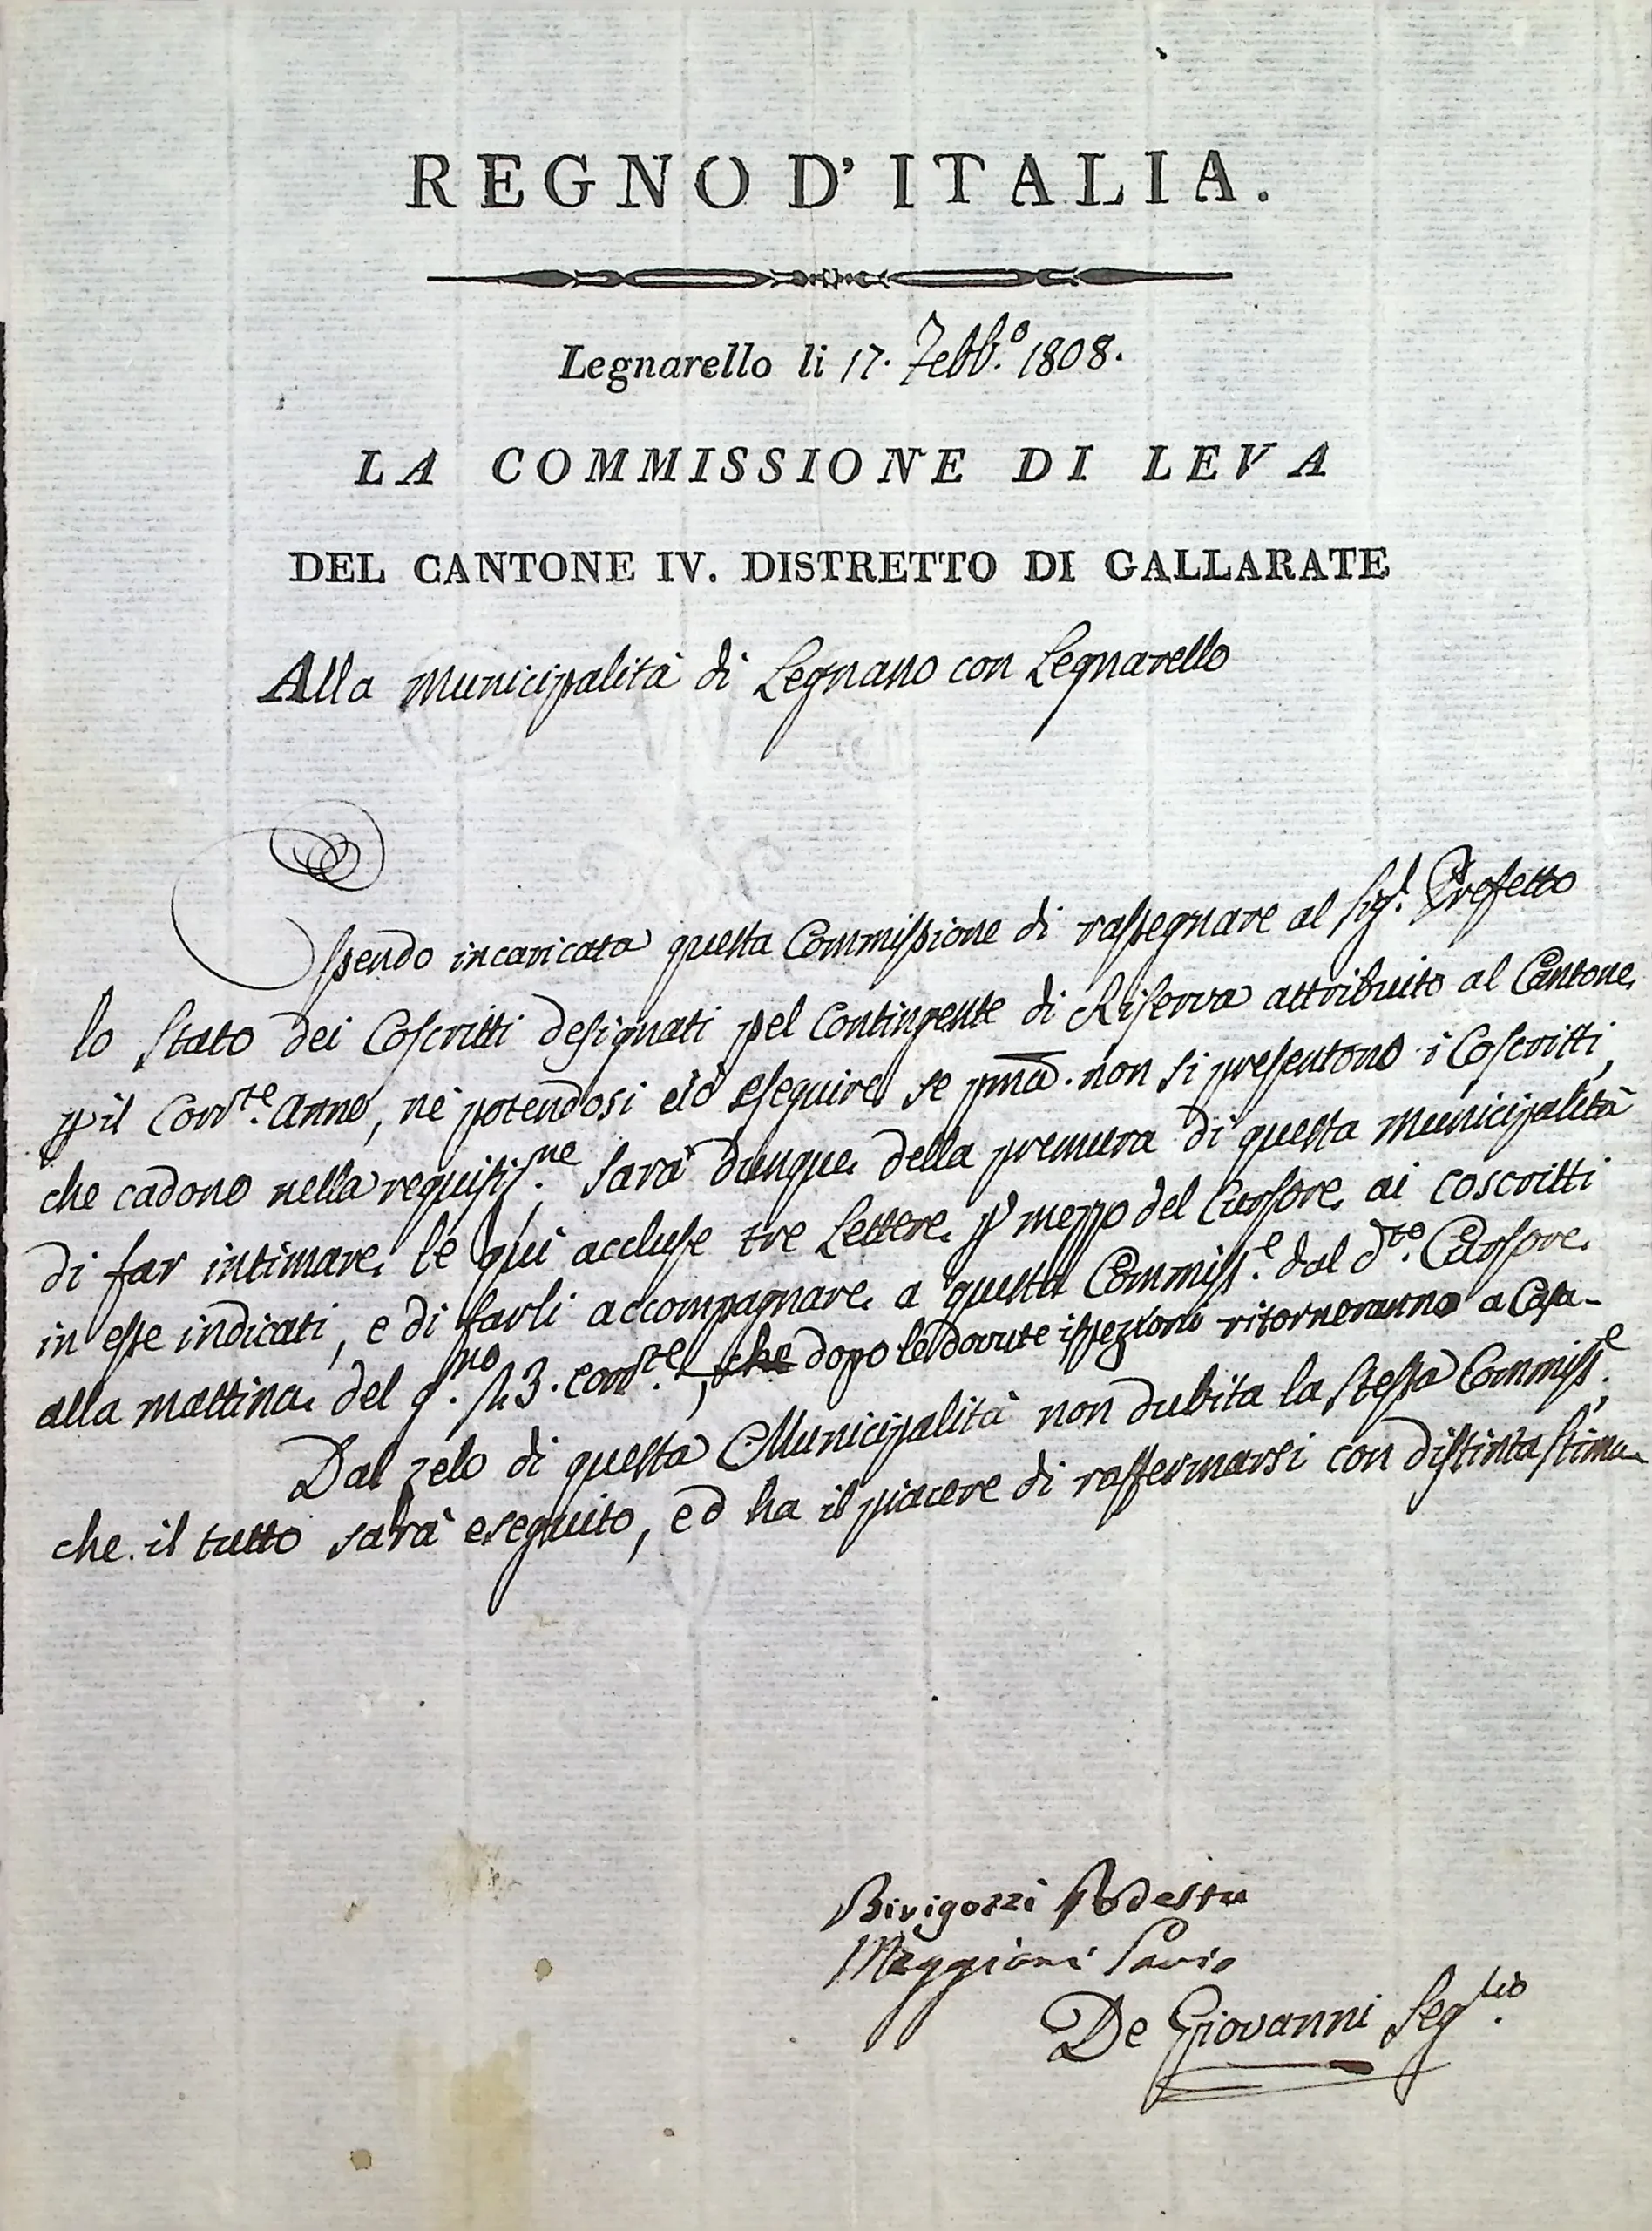 REGNO D'ITALIA.
Legnarello li 17. Febb.º 1808.
LA COMMISSIONE DI LEVA
DEL CANTONE IV. DISTRETTO DI GALLARATE
Alla Municipalità di Legnano con Legnarello
Essendo incaricata questa Commissione di rassegnare al Sig.r Prefetto
lo Stato dei Coscritti designati pel Contingente di Riserva attribuito al Cantone
p il Corr.te Anno, nè potendosi ciò eseguire se pma. non si presentono i Coscritti,
che cadono nella requisiz.ne sarà dunque della premura di questa Municipalità
di far intimare le qui accluse tre Lettere p mezzo del Cursore ai coscritti
in esse indicati, e di farli accompagnare a questa Commiss.e dal d.to Cursore
alla mattina del g.no 23. corr.te, che dopo le dovute ispezioni ritorneranno a Casa-
Dal zelo di questa Municipalità non dubita la Stessa Commiss.e,
che il tutto sarà eseguito, ed ha il piacere di raffermarsi con distinta stima
Bivigozzi Podestà
Maggioni Savio
De Giovanni Seg.rio